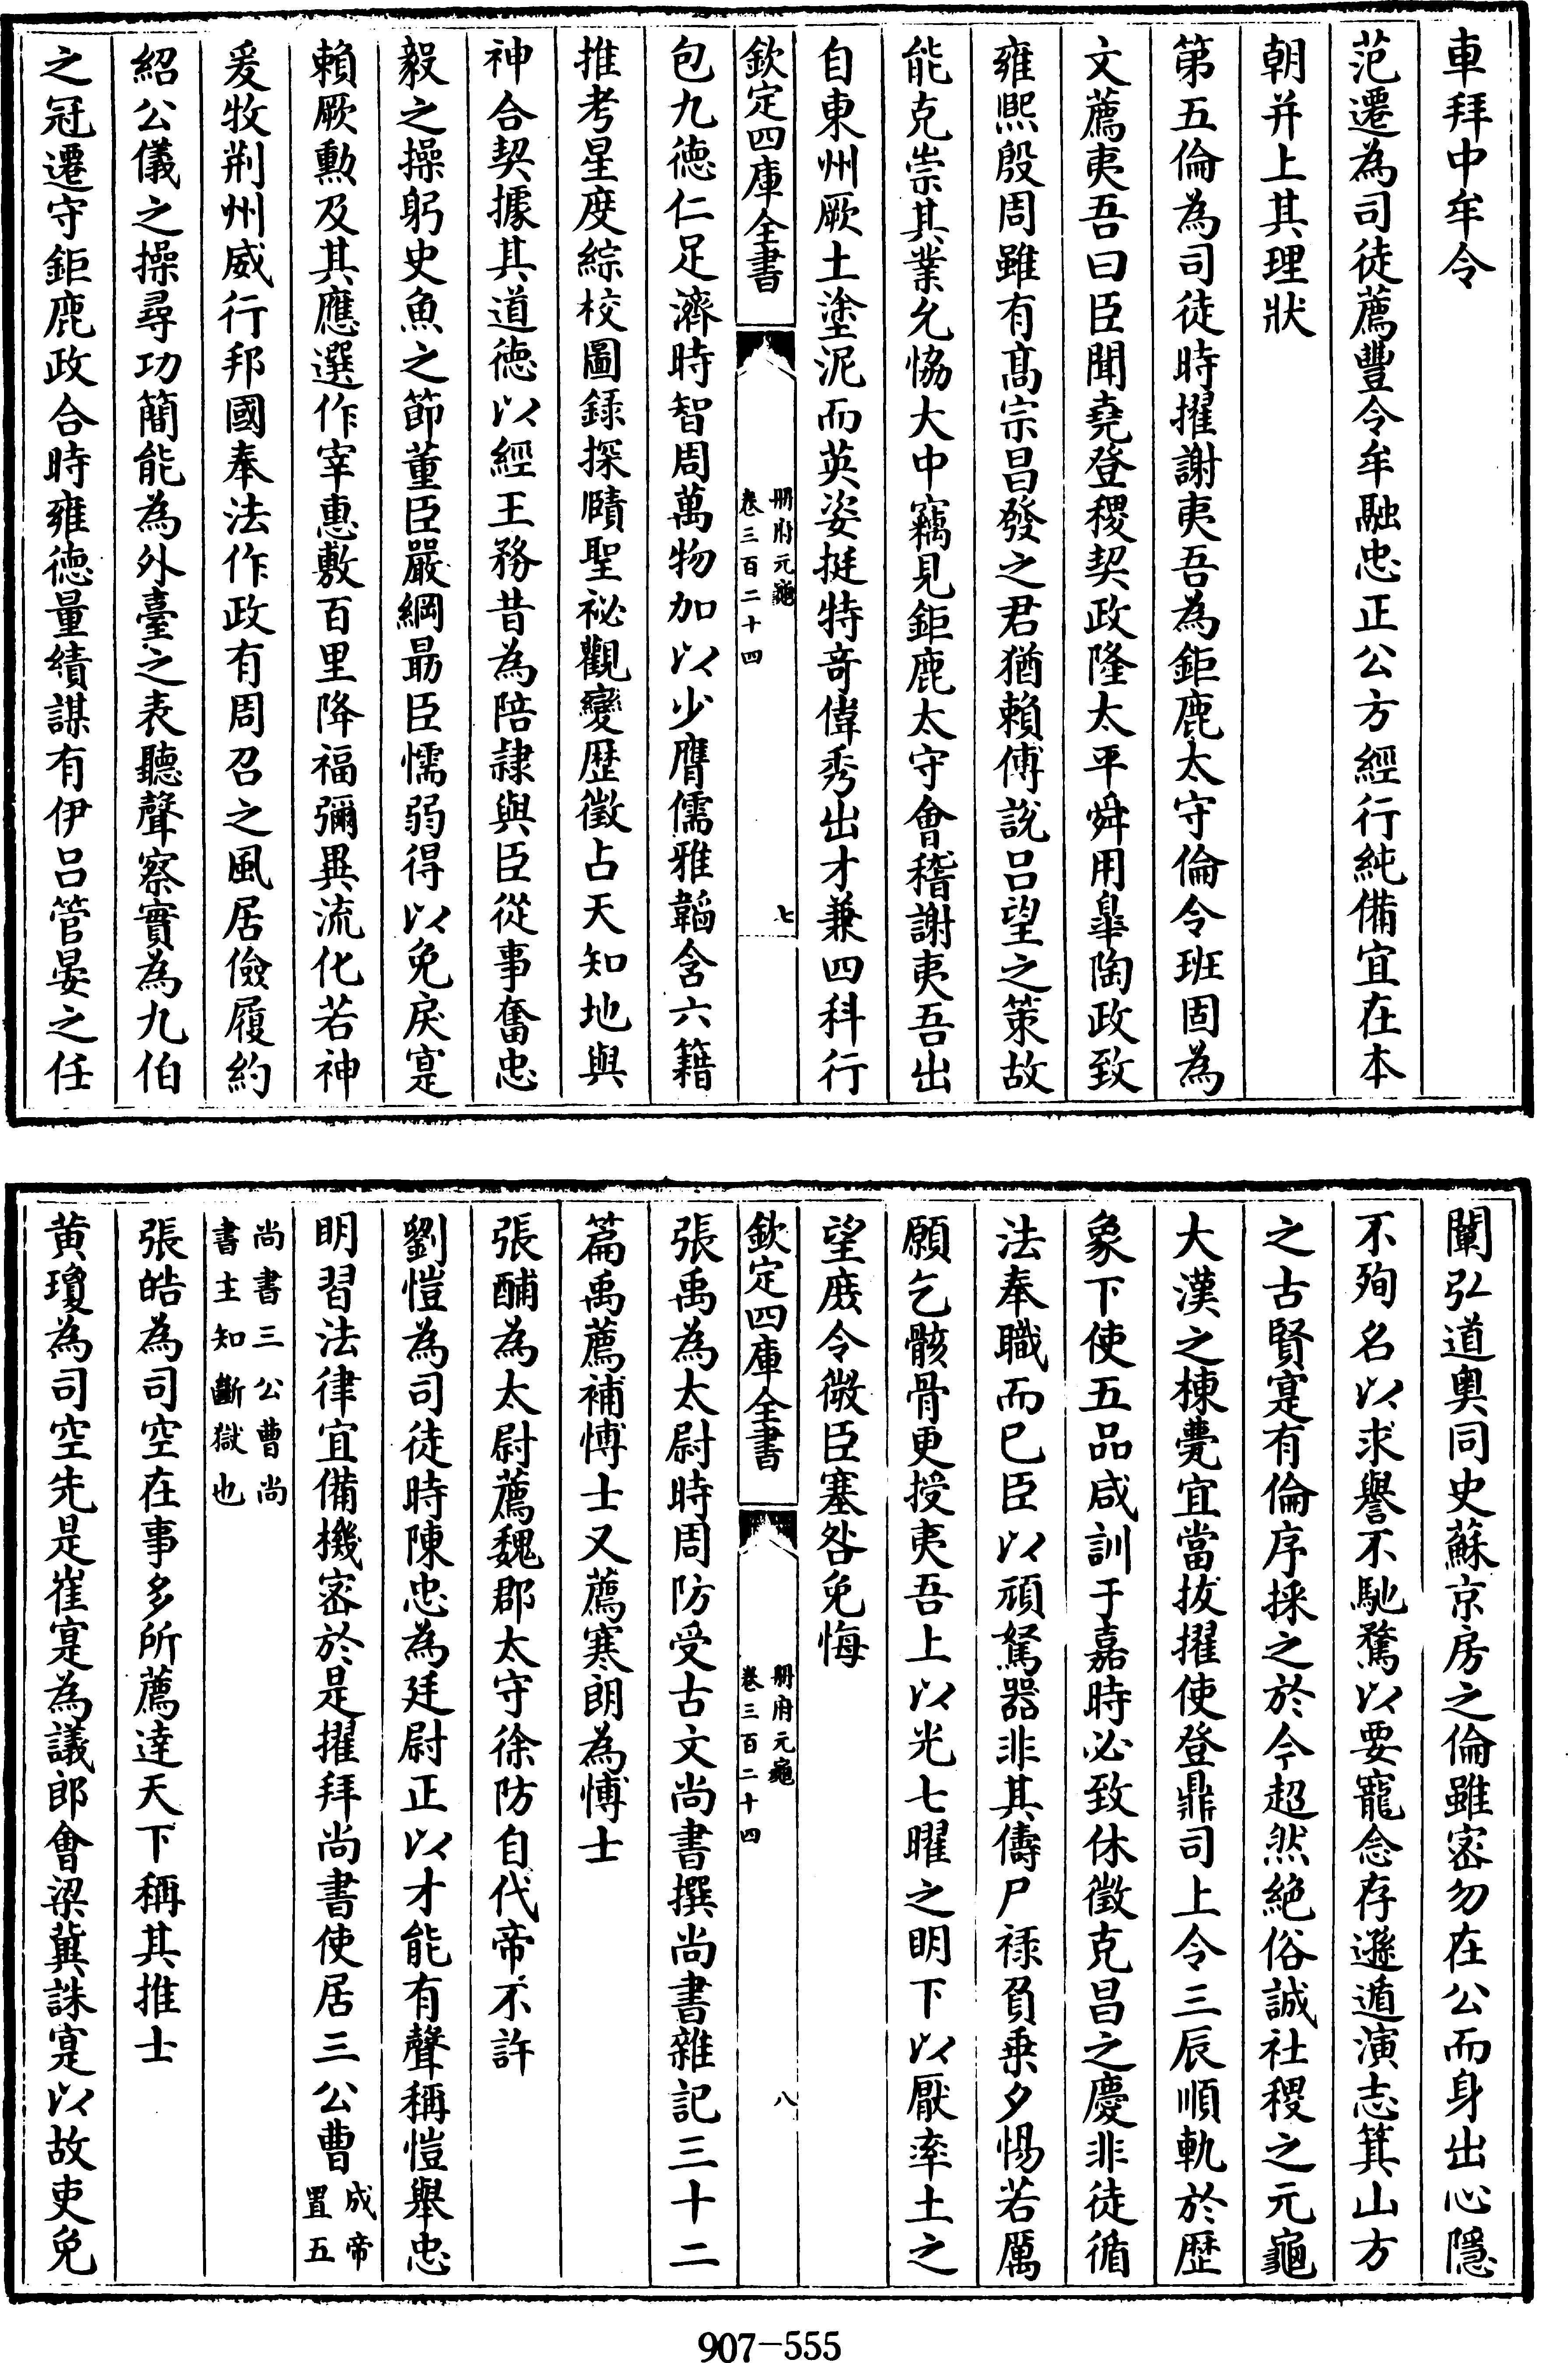 車拜中牟令
范遷為司徒薦豐令牟融忠正公方經行純備宜在本
朝并上其理狀
第五倫為司徒時擢謝夷吾為鉅鹿太守倫令班固為
文薦夷吾曰臣聞堯登稷契政隆太平舜用臯陶政致
雍熙殷周雖有髙宗昌發之君猶賴傅說呂望之策故
能克崇其業允恊大中竊見鉅鹿太守會稽謝夷吾出
自東州厥土塗泥而英姿挺特竒偉秀出才兼四科行
欽定四庫全書
冊府元龜
卷三百二十四
七
包九徳仁足濟時智周萬物加以少膺儒雅韜含六籍
推考星度綜校圖録探賾聖祕觀變歴徵占天知地與
神合契據其道徳以經王務昔為陪隷與臣從事奮忠
毅之操躬史魚之節董臣嚴綱勗臣懦弱得以免戾寔
賴厥勳及其應選作宰惠敷百里降福彌異流化若神
爰牧荆州威行邦國奉法作政有周召之風居儉履約
紹公儀之操尋功簡能為外臺之表聽聲察實為九伯
之冠遷守鉅鹿政合時雍徳量績謀有伊呂管晏之任
闡弘道奥同史蘇京房之倫雖密勿在公而身出心隱
不殉名以求譽不馳騖以要寵念存遜遁演志箕山方
之古賢寔有倫序採之於今超然絶俗誠社稷之元龜
大漢之棟甍宜當拔擢使登鼎司上令三辰順軌於歴
象下使五品咸訓于嘉時必致休徵克昌之慶非徒循
法奉職而已臣以頑駑器非其儔尸禄負乗夕惕若厲
願乞骸骨更授夷吾上以光七曜之明下以厭率土之
望庶令微臣塞咎免悔
欽定四庫全書
冊府元龜
卷三百二十四
八
張禹為太尉時周防受古文尚書撰尚書雜記三十二
篇禹薦補博士又薦寒朗為博士
張酺為太尉薦魏郡太守徐防自代帝不許
劉愷為司徒時陳忠為廷尉正以才能有聲稱愷舉忠
明習法律宜備機密於是擢拜尚書使居三公曹成帝置五
尚書三公曹尚書主知斷獄也
張皓為司空在事多所薦達天下稱其推士
黄瓊為司空先是崔寔為議郎會梁冀誅寔以故吏免
907-555